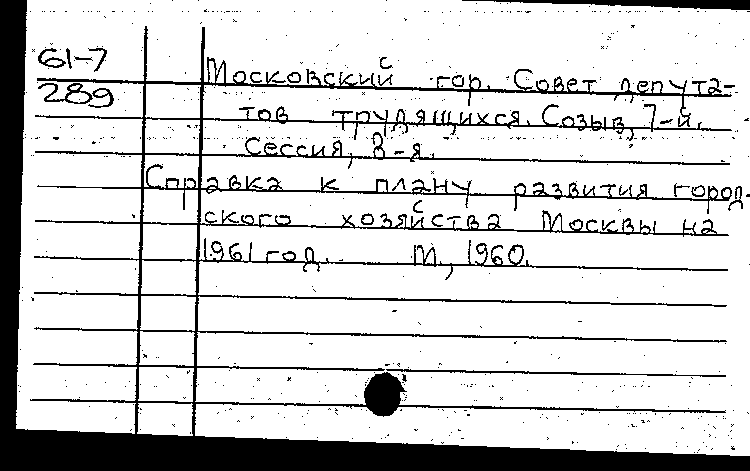 61-7
289
Московский гор. Совет депута-
тов трудящихся. Созыв, 7-й.
Сессия, 8-я.
Справка к плану развития город-
ского хозяйства Москвы на
1961 год. М., 1960.